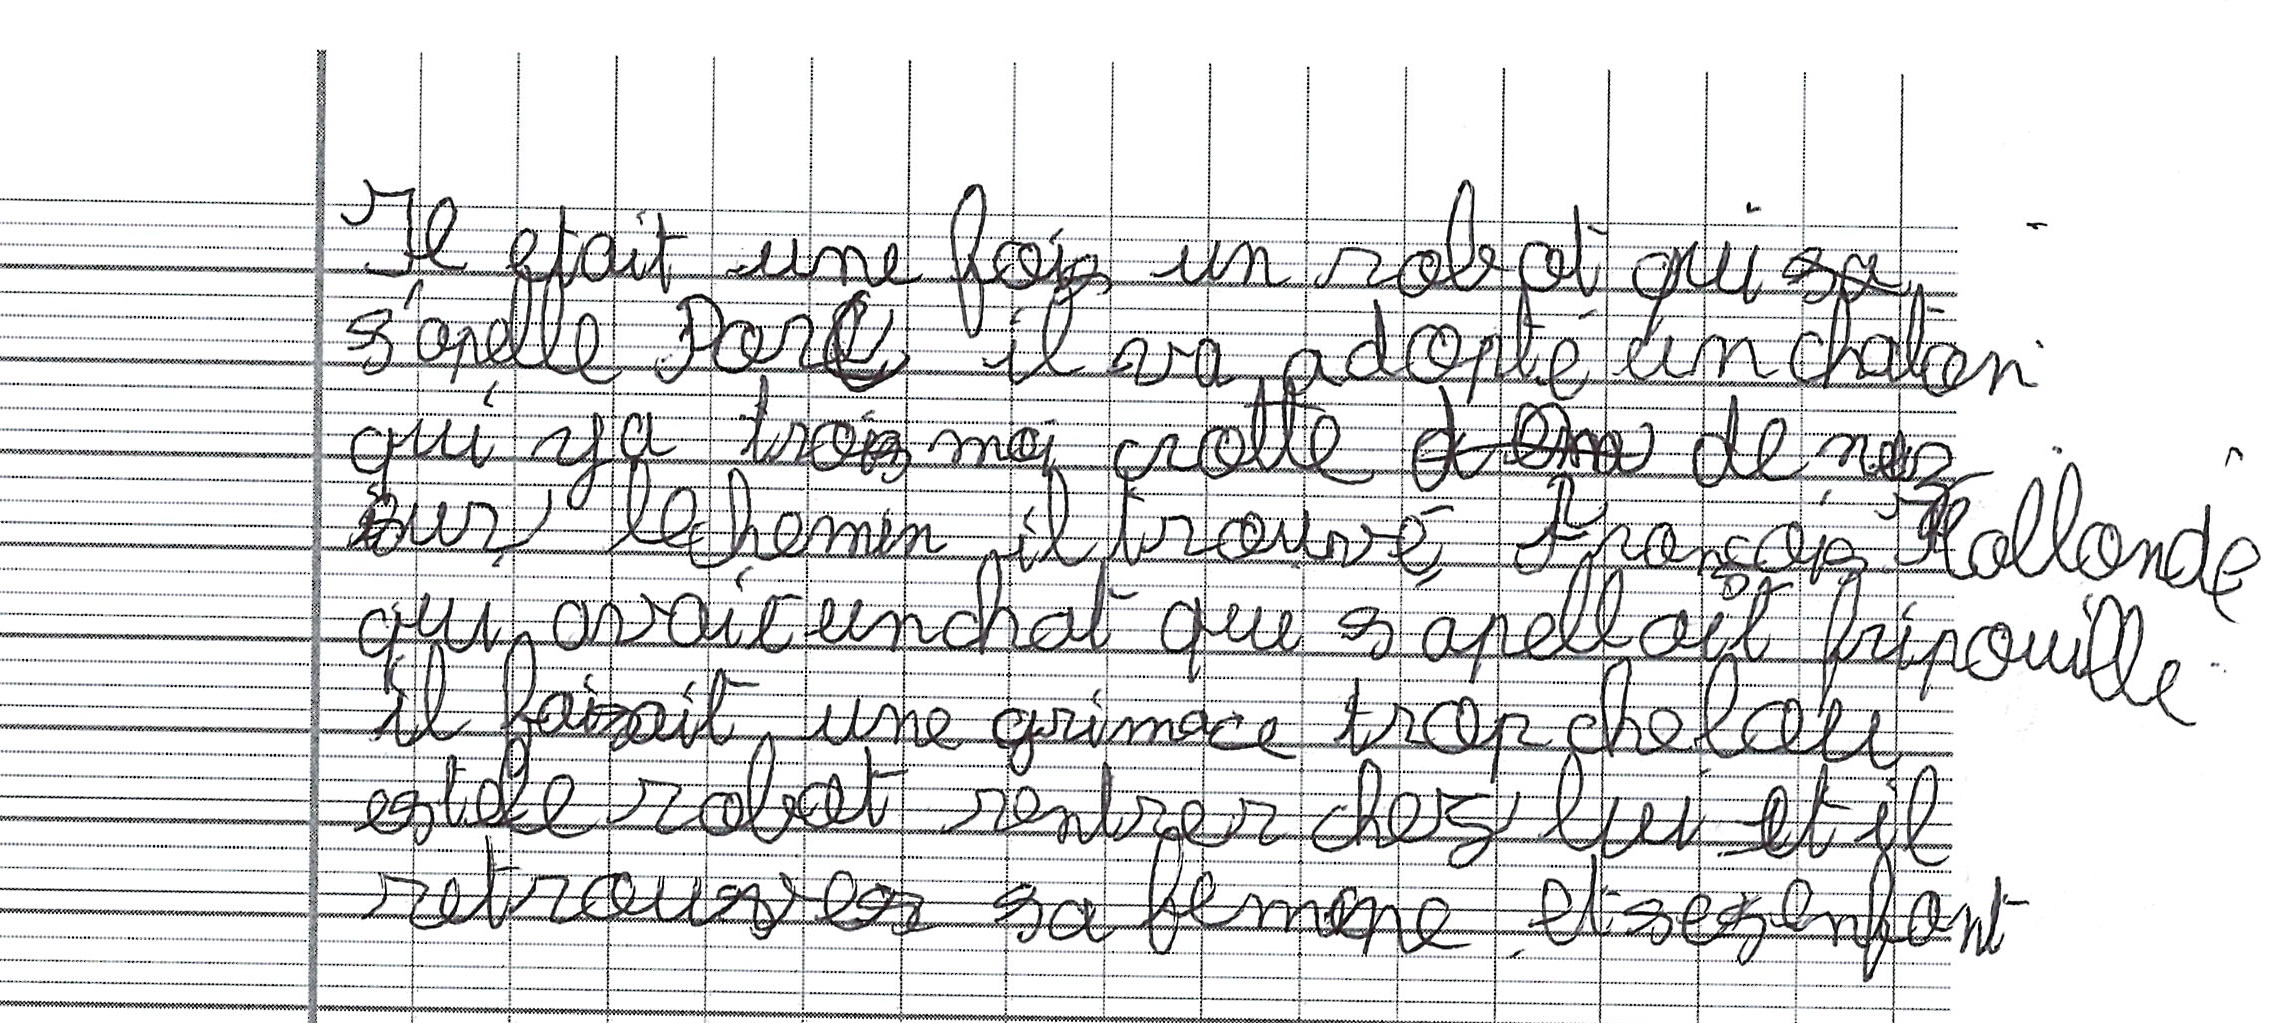 Il etait une fois un robot qui sa
s'apelle Parc il va adopté un chaton
qui ya trois moi crotte de nez
sur lehemin il trouvé françois Hollonde
qui avait un chat que s'apellait fripouille
il faisait une grimace trop chelou
estle robot rentrer chez lui et il
retrouver sa femme et ses enfant